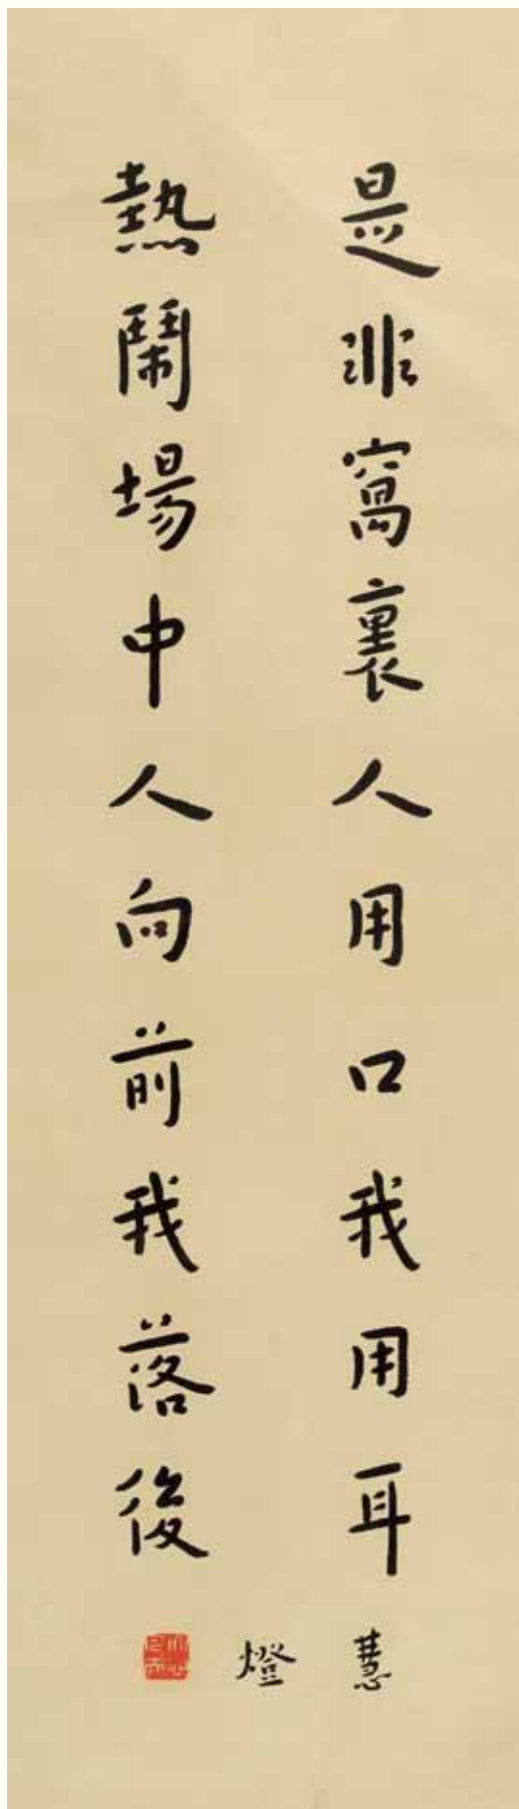 是非窩裏人用口我用耳
熱鬧場中人向前我落後
慧燈